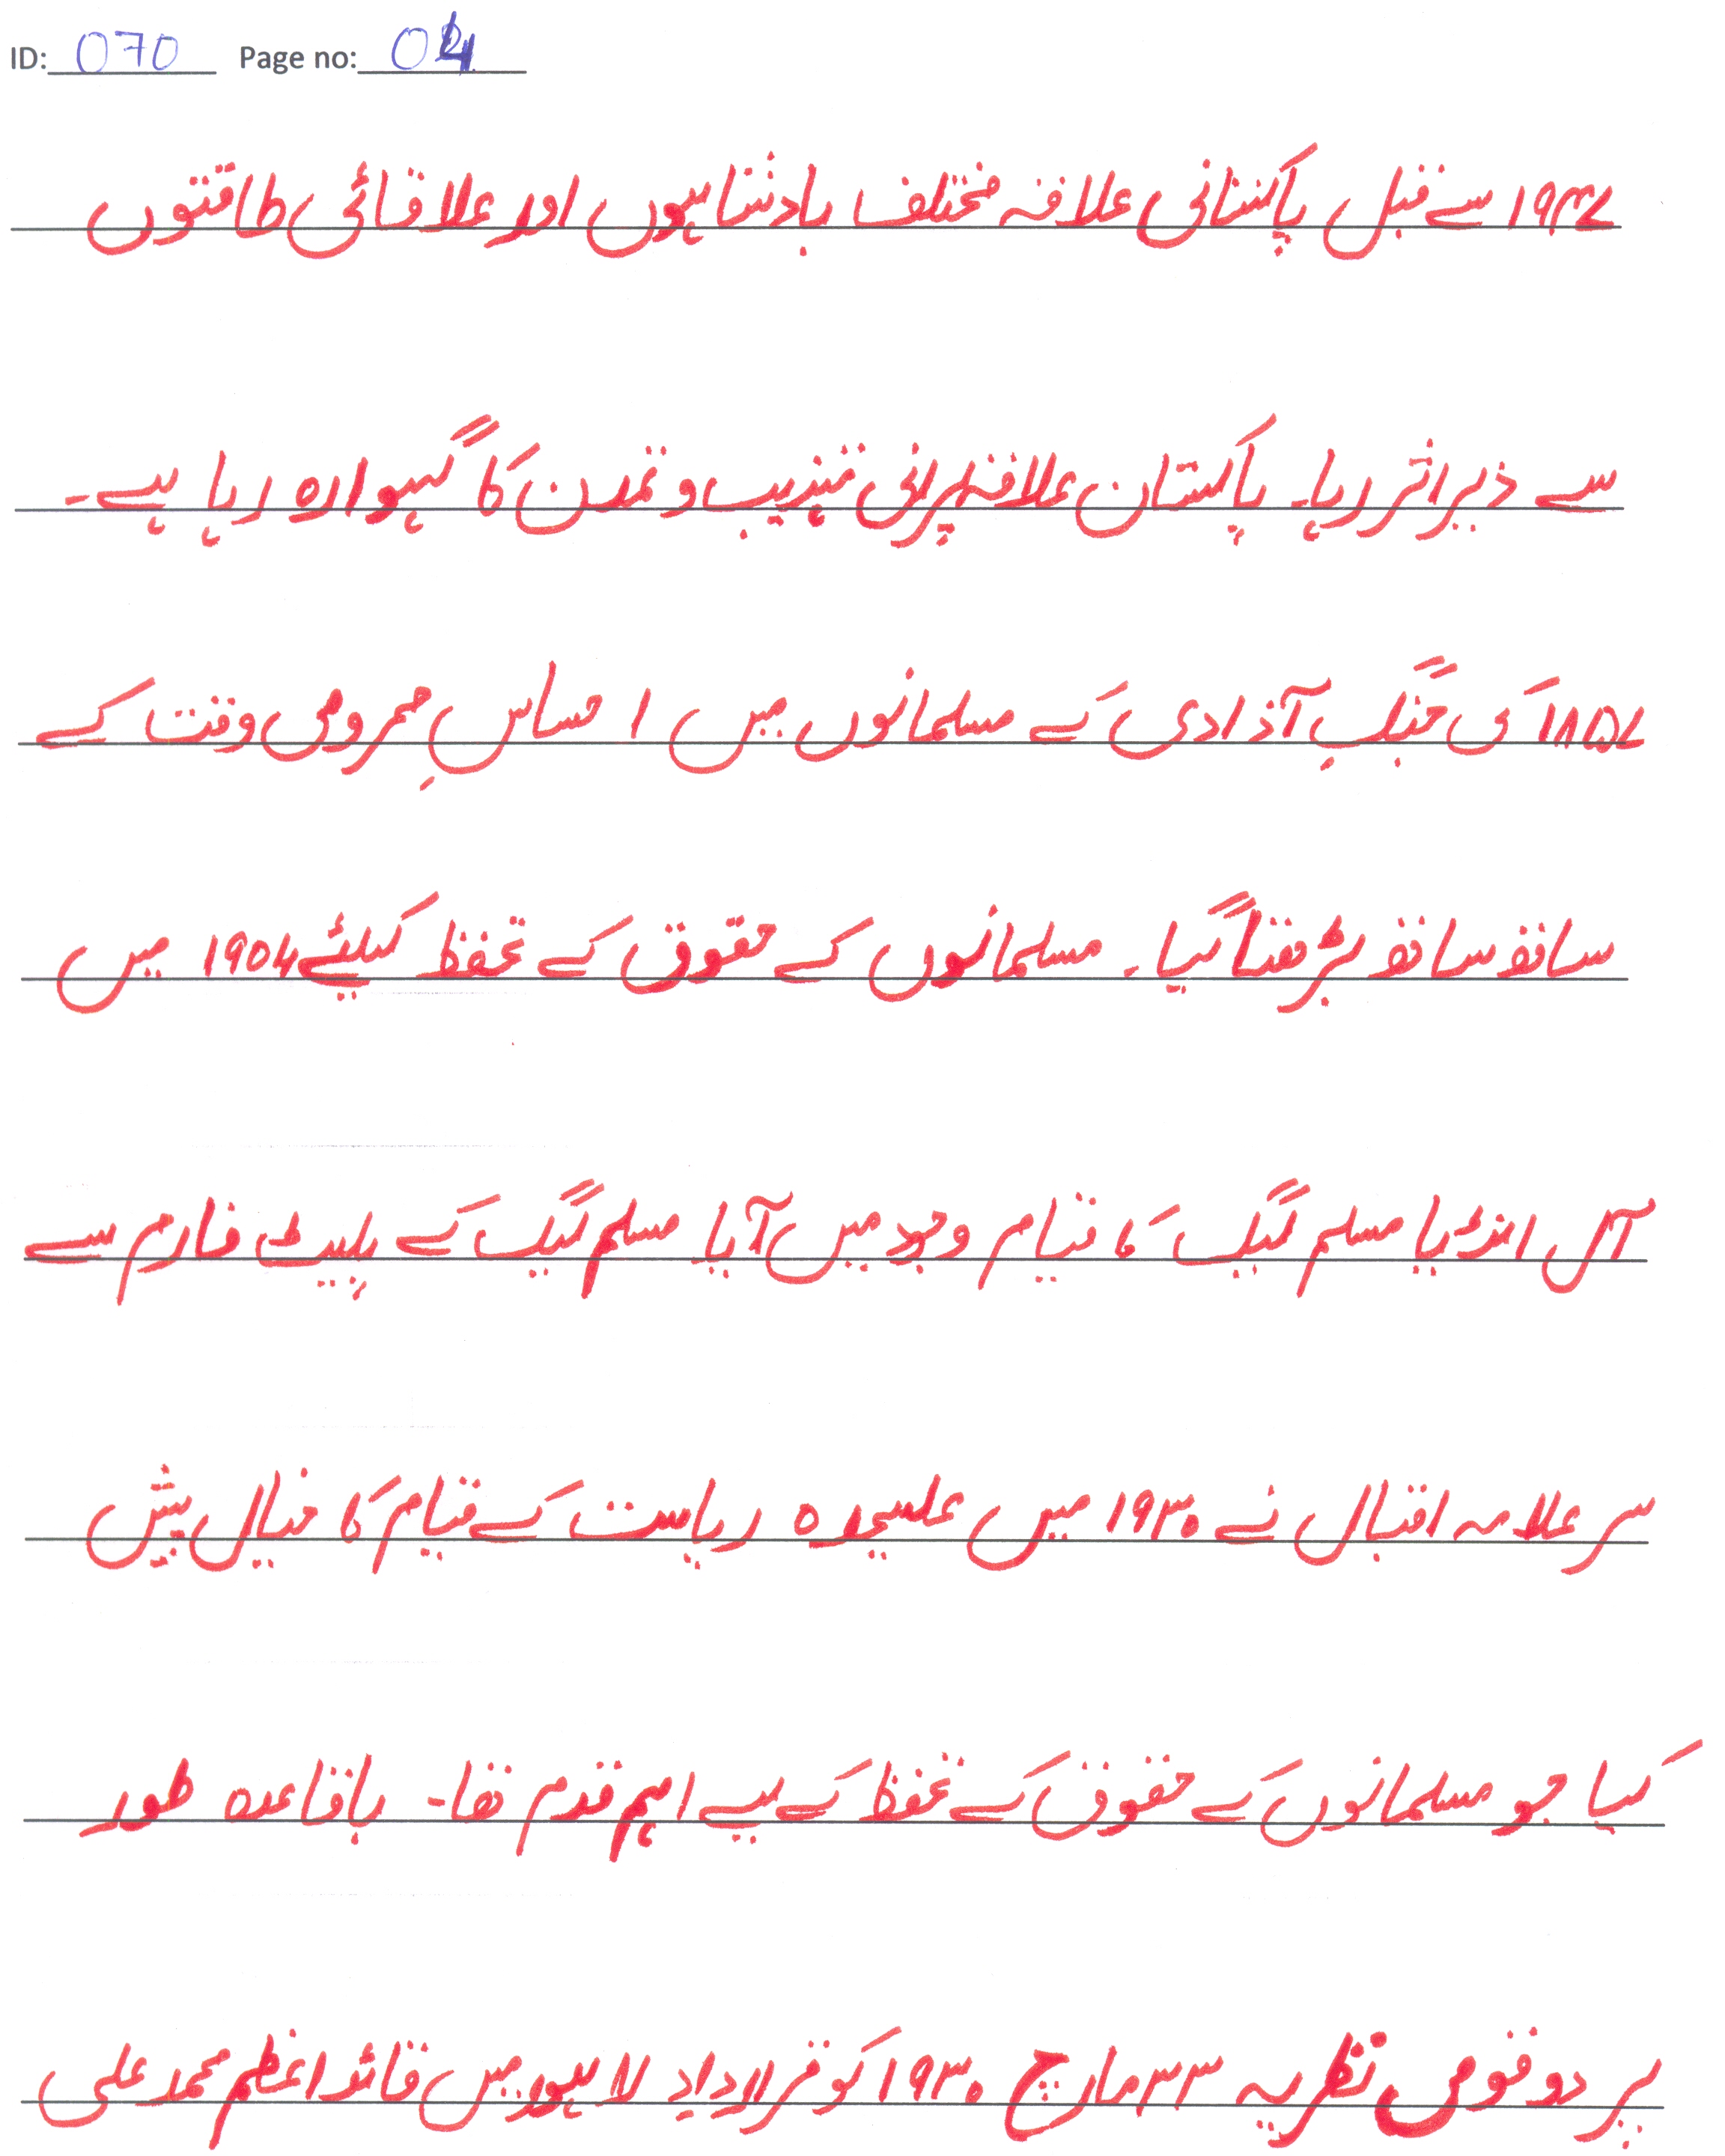 ID: 070 Page no: 04
۱۹۴۷ سے قبل پاکستانی علاقہ مختلف بادشاہوں اور علاقائی طاقتوں
سے ذیر اثر رہا۔ پاکستان علاقہ پرانی تہذیب و تمدن کا گہوارہ رہا ہے۔
۱۸۵۷ کی جنگِ آذادی کے مسلمانوں میں احساسِ محرومی وقت کے
ساتھ ساتھ بڑھتا گیا۔ مسلمانوں کے حقوق کے تحفظ کیلئے ۱۹۰۶ میں
آل انڈیا مسلم لیگ کا قیام وجود میں آیا مسلم لیگ کے پلیٹ فارم سے
سر علامہ اقبال نے ۱۹۳۰ میں علیحیدہ ریاست کے قیام کا خیال پیش
کیا جو مسلمانوں کے حقوق کے تحفظ کے لیے اہم قدم تھا۔ باقاعدہ طور
پر دو قومی نظریہ ۲۳ مارچ ۱۹۴۰ کو قراردادِ لاہور میں قائد اعظم محمد علی